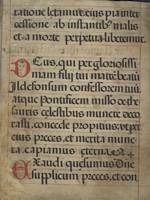 ratione lętamur, eius pia inter
cessione ab instantib. malis
et a morte perpetua liberemur.
DEus, qui per gloriosissi
mam filij tui matrē beatū
Ildefonsum confessorem tuū
atque Pontificem misso de the
sauris celestibus munere deco
rasti, concede propitius, vt per
eius preces, et merita munera
ta capiamus eterna.
EXaudi quesumus Dñe
supplicum preces, et con